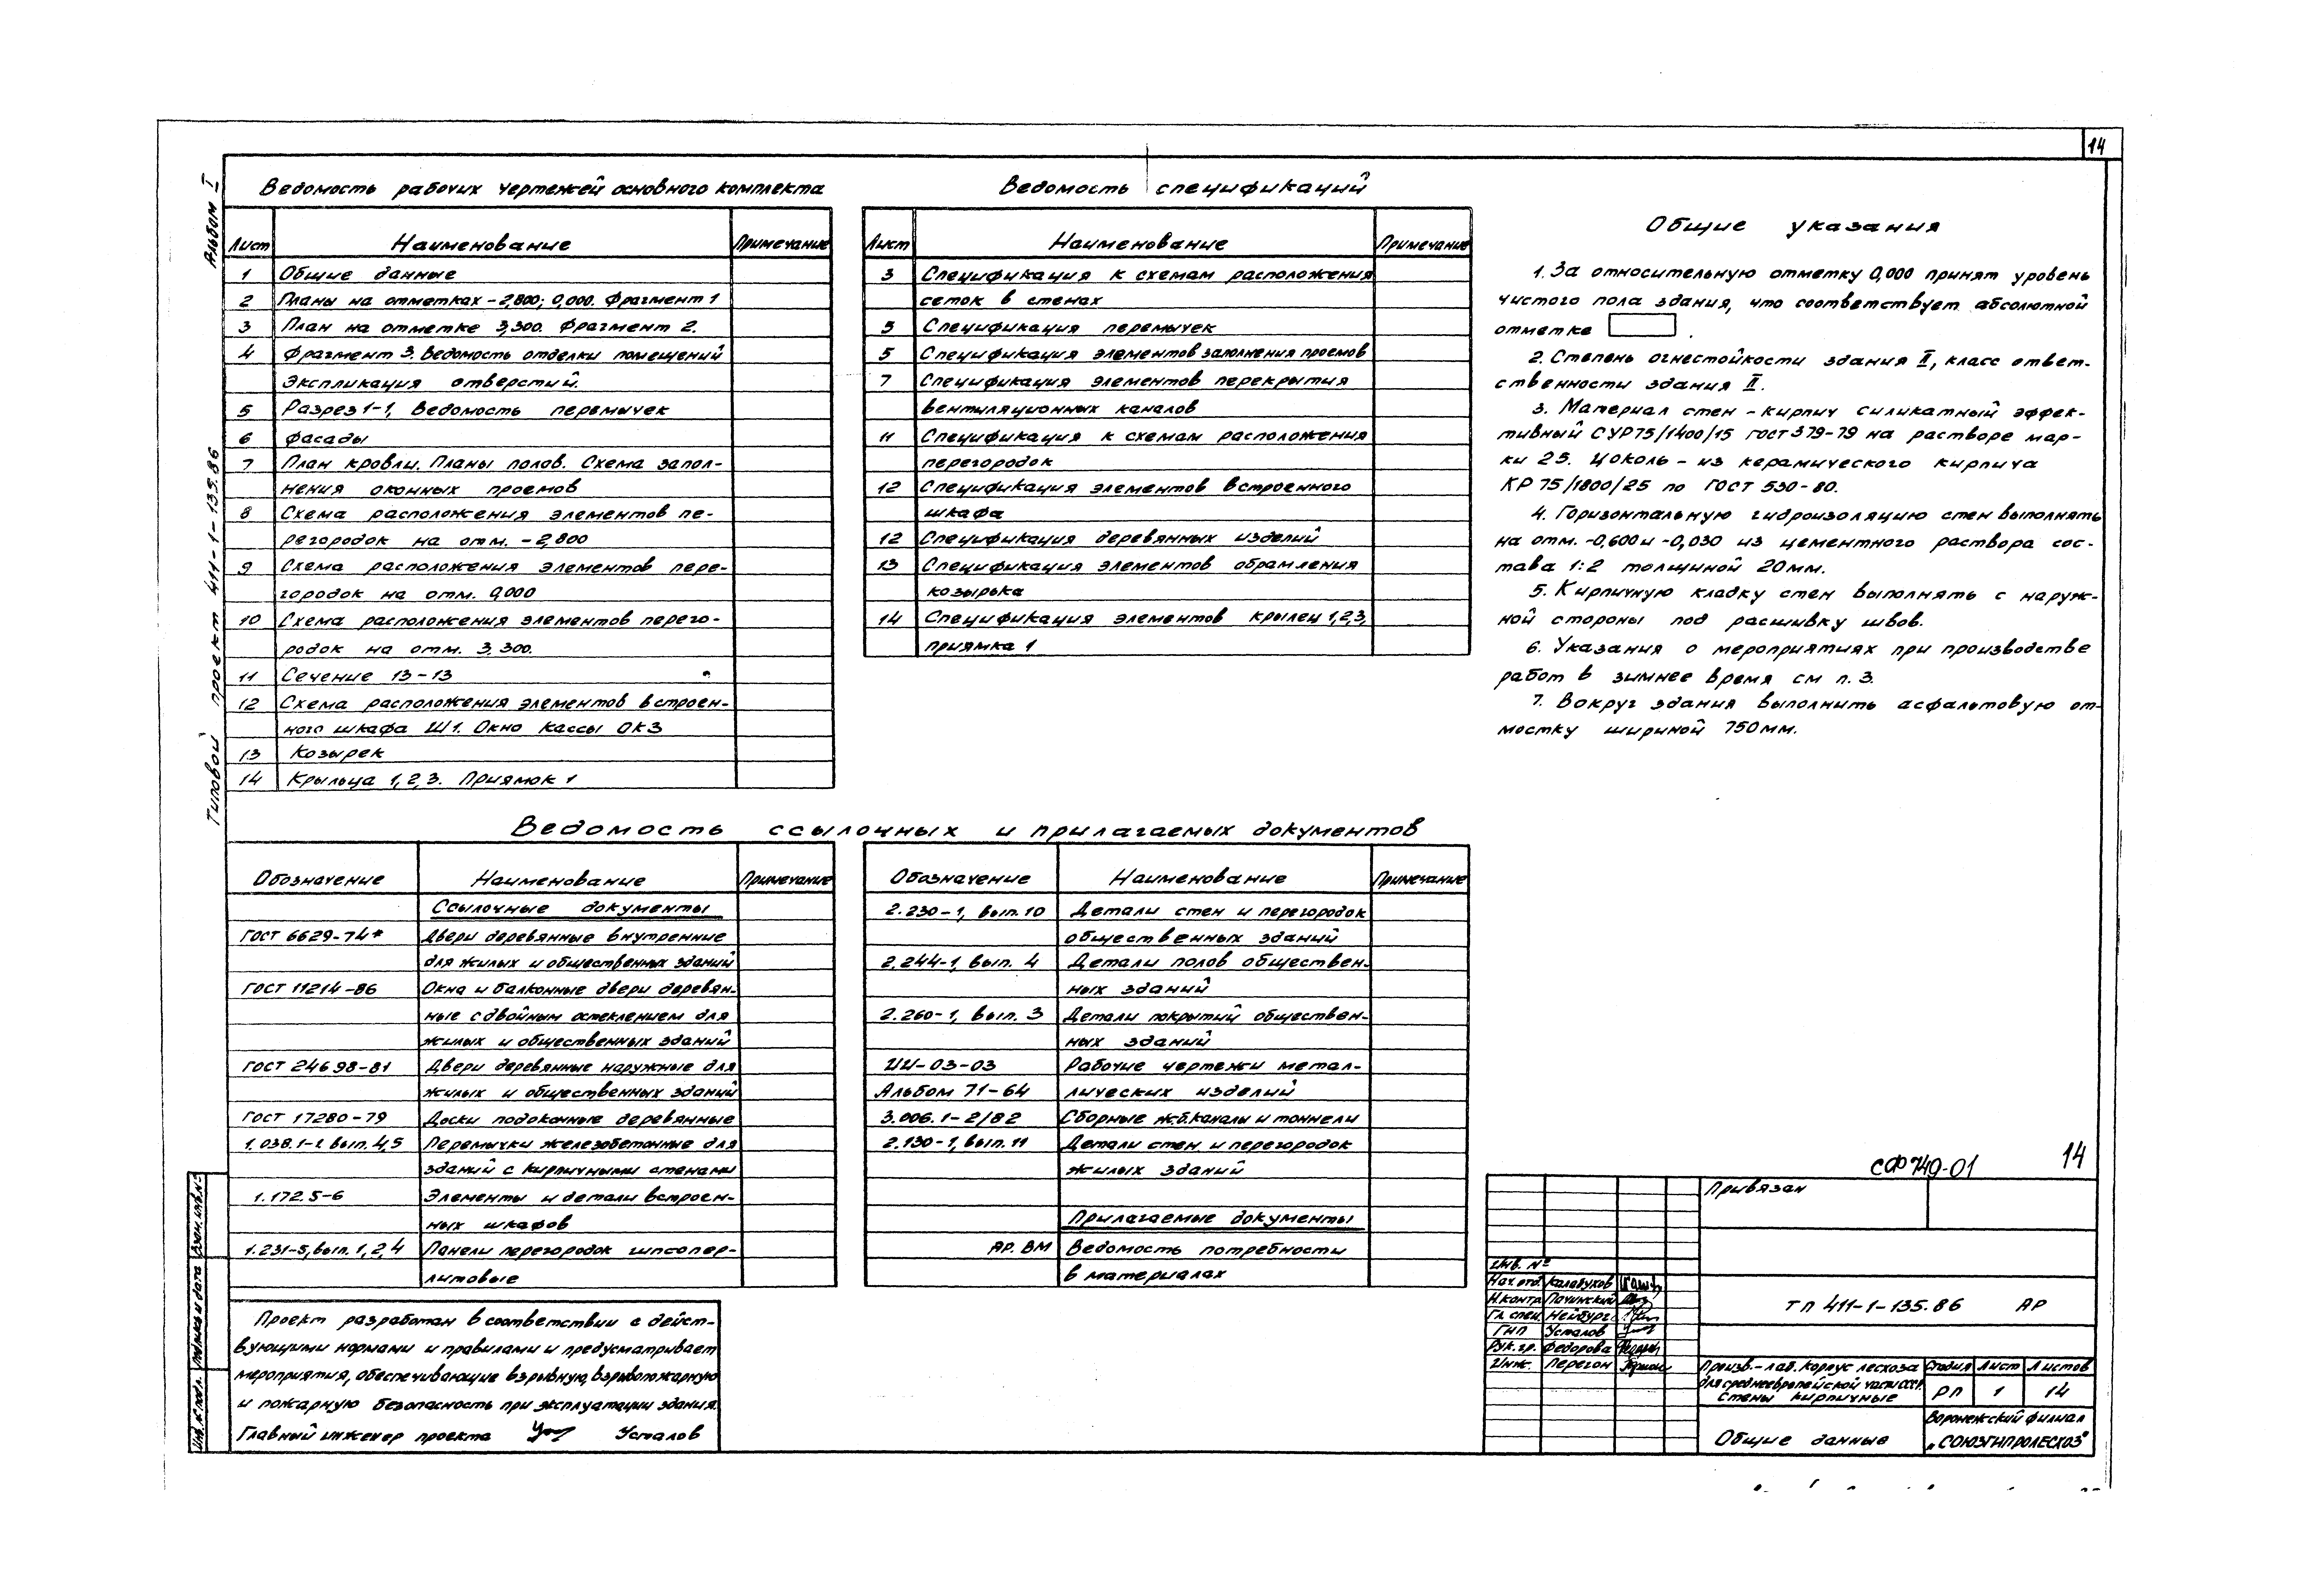 14
Альбом I
Типовой проект 411-1-135.86
Ведомость рабочих чертежей основного комплекта
Лист Наименование Примечание
1 Общие данные
2 Планы на отметках -2,800; 0,000. Фрагмент 1
3 План на отметке 3,300. Фрагмент 2.
4 Фрагмент 3. Ведомость отделки помещений
Экспликация отверстий.
5 Разрез 1-1, Ведомость перемычек
6 Фасады
7 План кровли. Планы полов. Схема запол-
нения оконных проемов
8 Схема расположения элементов пе-
регородок на отм. -2,800
9 Схема расположения элементов пере-
городок на отм. 0,000
10 Схема расположения элементов перего-
родок на отм. 3,300.
11 Сечение 13-13
12 Схема расположения элементов встроен-
ного шкафа Ш1. Окно кассы ОК3
13 Козырек
14 Крыльца 1,2,3. Приямок 1
Ведомость спецификаций
Лист Наименование Примечание
3 Спецификация к схемам расположения
сеток в стенах
5 Спецификация перемычек
5 Спецификация элементов заполнения проемов
7 Спецификация элементов перекрытия
вентиляционных каналов
11 Спецификация к схемам расположения
перегородок
12 Спецификация элементов встроенного
шкафа
12 Спецификация деревянных изделий
13 Спецификация элементов обрамления
козырька
14 Спецификация элементов крылец 1,2,3,
приямка 1
Общие указания
1. За относительную отметку 0,000 принят уровень
чистого пола здания, что соответствует абсолютной
отметке .
2. Степень огнестойкости здания II, класс ответ-
ственности здания II.
3. Материал стен - кирпич силикатный эффек-
тивный СУР 75/1400/15 ГОСТ 379-79 на растворе мар-
ки 25. Цоколь - из керамического кирпича
КР 75/1800/25 по ГОСТ 530-80.
4. Горизонтальную гидроизоляцию стен выполнять
на отм. -0,600 и -0,030 из цементного раствора сос-
тава 1:2 толщиной 20мм.
5. Кирпичную кладку стен выполнять с наруж-
ной стороны под расшивку швов.
6. Указания о мероприятиях при производстве
работ в зимнее время см л. 3.
7. Вокруг здания выполнить асфальтовую от-
мостку шириной 750мм.
Ведомость ссылочных и прилагаемых документов
Обозначение Наименование Примечание
Ссылочные документы
ГОСТ 6629-74* Двери деревянные внутренние
для жилых и общественных зданий
ГОСТ 11214-86 Окна и балконные двери деревян-
ные с двойным остеклением для
жилых и общественных зданий
ГОСТ 24698-81 Двери деревянные наружные для
жилых и общественных зданий
ГОСТ 17280-79 Доски подоконные деревянные
1.038.1-1 вып. 4,5 Перемычки железобетонные для
зданий с кирпичными стенами
1.172.5-6 Элементы и детали встроен-
ных шкафов
1.231-5, вып. 1,2,4 Панели перегородок гипсопер-
литовые
Обозначение Наименование Примечание
2.230-1, вып. 10 Детали стен и перегородок
общественных зданий
2.244-1, вып. 4 Детали полов обществен-
ных зданий
2.260-1, вып. 3 Детали покрытий обществен-
ных зданий
ИИ-03-03 Рабочие чертежи метал-
Альбом 71-64 лических изделий
3.006.1-2/82 Сборные ж.б. каналы и тоннели
2.130-1, вып. 11 Детали стен и перегородок
жилых зданий
Прилагаемые документы
АР. ВМ Ведомость потребности
в материалах
Проект разработан в соответствии с дейст-
вующими нормами и правилами и предусматривает
мероприятия, обеспечивающие взрывную, взрывопожарную
и пожарную безопасность при эксплуатации здания.
Главный инженер проекта Усталов
Инв. № подл. Подпись и дата Взам. инв. №
СФ 749-01 14
Привязан
Инв. №
Нач. отд. Калабухов
Н.контр. Починский
Гл. спец. Нейбург
ГИП Усталов
Рук. гр. Федорова
Инж. Перегон
ТП 411-1-135.86 АР
Произв.-лаб. корпус лесхоза
для среднеевропейской части СССР.
Стены кирпичные
Стадия Лист Листов
РП 1 14
Общие данные
Воронежский филиал
"СОЮЗГИПРОЛЕСХОЗ"